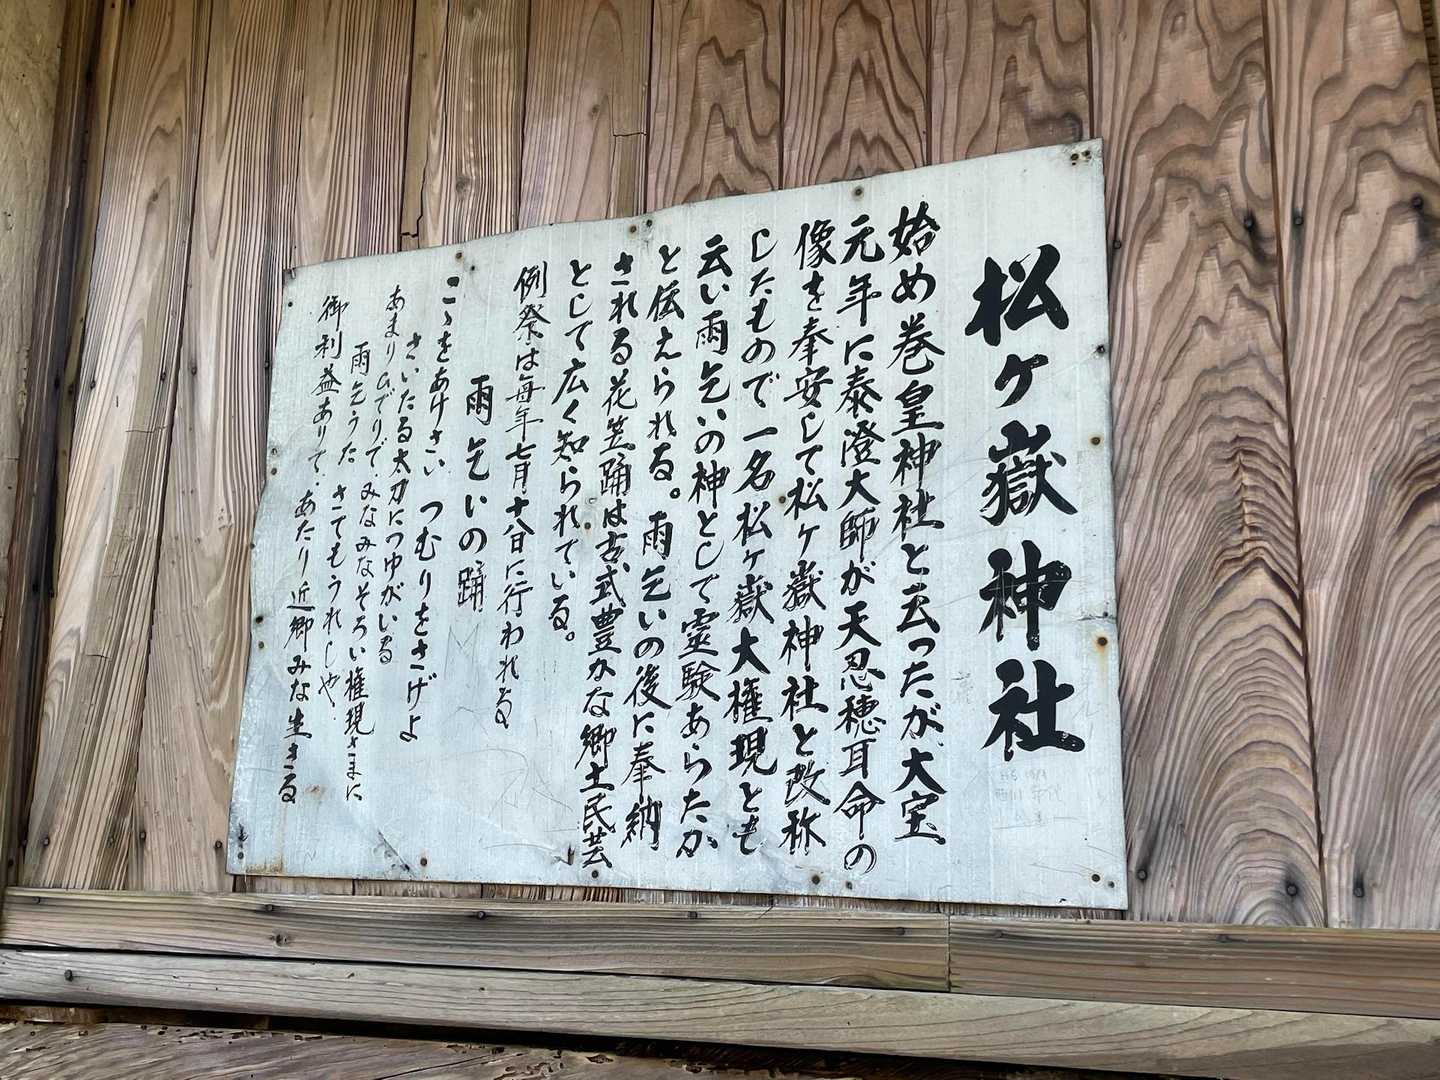 松ヶ嶽神社
始め巻皇神社と云ったが、大宝
元年に泰澄大師が天忍穂耳命の
像を奉安して松ヶ嶽神社と改称
したもので一名松ヶ嶽大権現とも
云い雨乞いの神として霊験あらたか
と伝えられる。雨乞いの後に奉納
される花笠踊は古式豊かな郷土民芸
として広く知られている。
例祭は毎年七月十八日に行われる
雨乞いの踊
こゝをあけさい つむりをさげよ
さいたる太刀につゆがいる
あまりひでりで みなみなそろい権現さまに
雨乞うた さてもうれしや、
御利益ありて、あたり近郷みな生きる